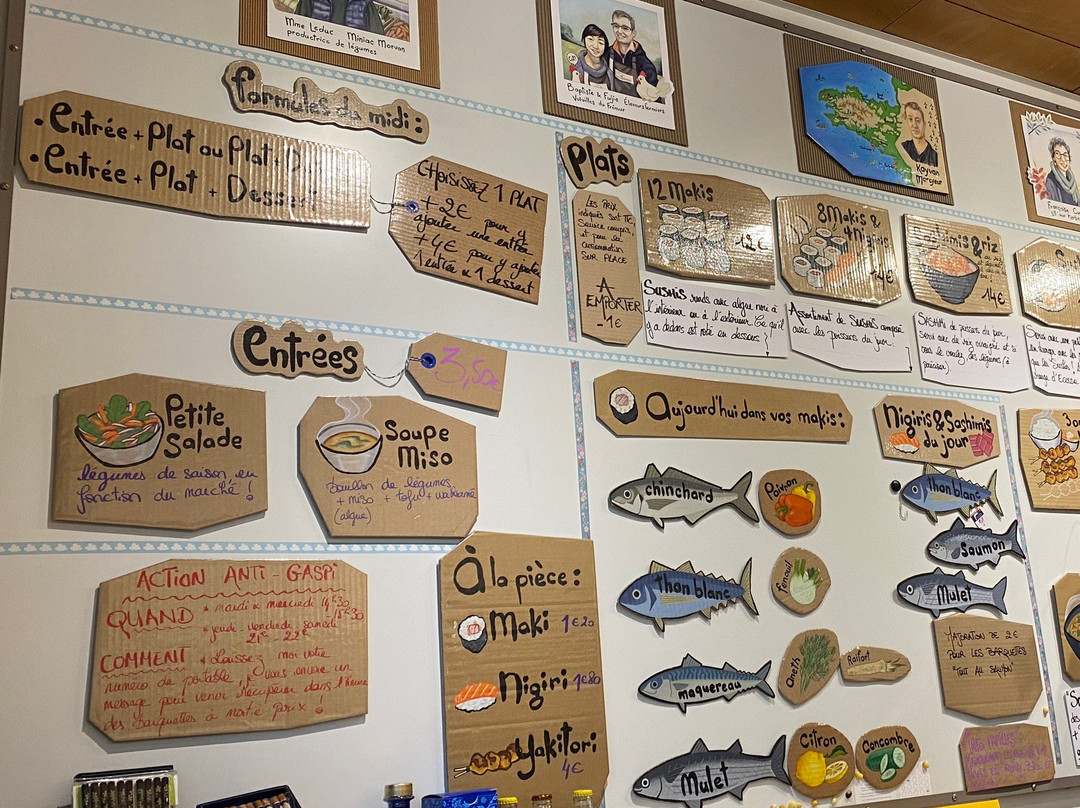 Mme Leduc Miniac Morvan
productrice de légumes
Baptiste & Fujie Éleveurs fermiers
Volailles du Frémur
Kayvan
Mareyeur
formules du midi :
• Entrée + Plat ou Plat + D
• Entrée + Plat + Dessert
CHOISISSEZ 1 PLAT
+ 2€ pour y
ajouter une entrée
+ 4€ pour y ajouter
1 entrée & 1 dessert
Plats
LES PRIX
indiqués sont TTC,
service compris,
et pour les
consommation
SUR PLACE
A
EMPORTER
- 1€
12 Makis
12€
8 Makis &
4 Nigiris
14€
Sashimis & riz
14€
SUSHIS ronds avec algue nori à
l'intérieur ou à l'extérieur. Ce qu'il
y a dedans est noté en dessous
Assortiment de SUSHIS composé
avec les poissons du jour.
SASHIMI de poissons du jour
servi avec du riz vinaigré et
Entrées
3,50€
Petite
Salade
légumes de saison en
fonction du marché !
Soupe
Miso
bouillon de légumes
+ miso + tofu + wakame
(algue)
ACTION ANTI-GASPI
QUAND * mardi & mercredi 14h30
- 15h30
* jeudi - vendredi - samedi
21h - 22h
COMMENT * Laissez moi votre
numéro de portable, je vous envoie un
message pour venir récupérer dans l'heure
des barquettes à moitié prix !
À la pièce :
Maki 1€20
Nigiri 1€80
Yakitori
4€
Aujourd'hui dans vos makis :
chinchard
Poivron
thon blanc
fenouil
maquereau
Aneth
Raifort
Mulet
Citron
Concombre
Nigiris & Sashimis
du jour
thon blanc
Saumon
Mulet
MAJORATION DE 2€
POUR LES BARQUETTES
"TOUT AU SAUMON"